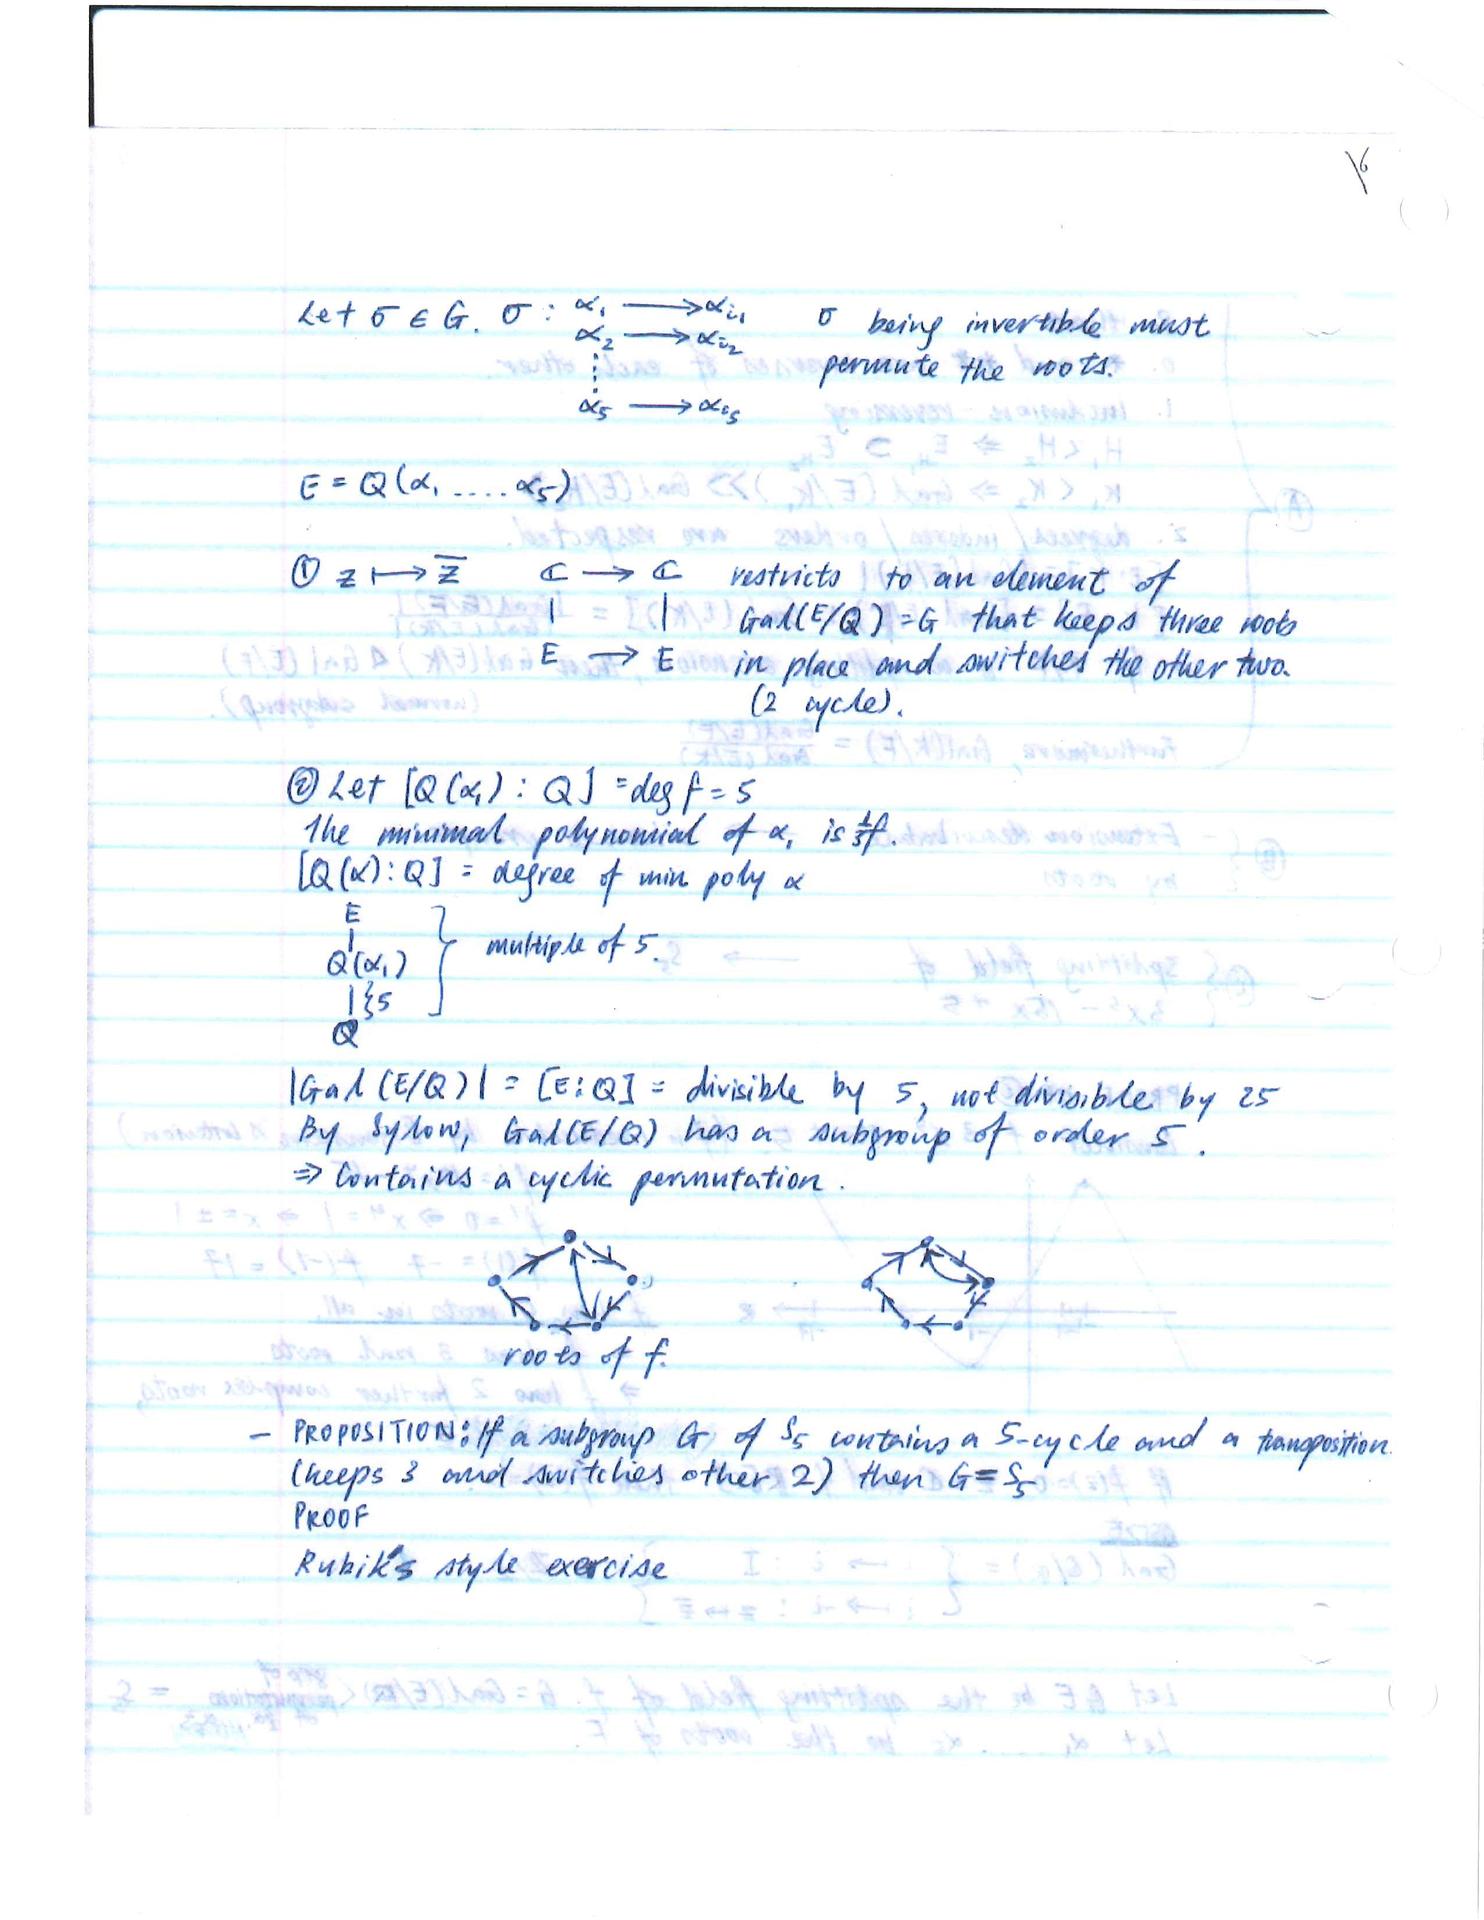 16
Let σ ∈ G. σ : α₁ ⟶ αᵢ₁ σ being invertible must
α₂ ⟶ αᵢ₂ permute the roots.
⋮
α₅ ⟶ αᵢ₅
E = Q(α₁ .... α₅)
① z ↦ z̄ ℂ → ℂ restricts to an element of
| | Gal(E/Q) = G that keeps three roots
E → E in place and switches the other two.
(2 cycle).
② Let [Q(α₁) : Q] = deg f = 5
The minimal polynomial of α₁ is ⅓f.
[Q(α) : Q] = degree of min poly α
E
|
Q(α₁) } multiple of 5.
| } 5
Q
|Gal(E/Q)| = [E:Q] = divisible by 5, not divisible by 25
By Sylow, Gal(E/Q) has a subgroup of order 5.
⇒ Contains a cyclic permutation.
roots of f.
- PROPOSITION: If a subgroup G of S₅ contains a 5-cycle and a transposition
(keeps 3 and switches other 2) then G = S₅
PROOF
Rubik's style exercise